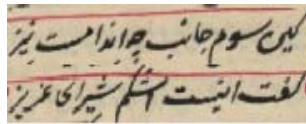 کین سوم جانب چه اندامست نیز
گفت اینست اشکم شیر ای عزیز